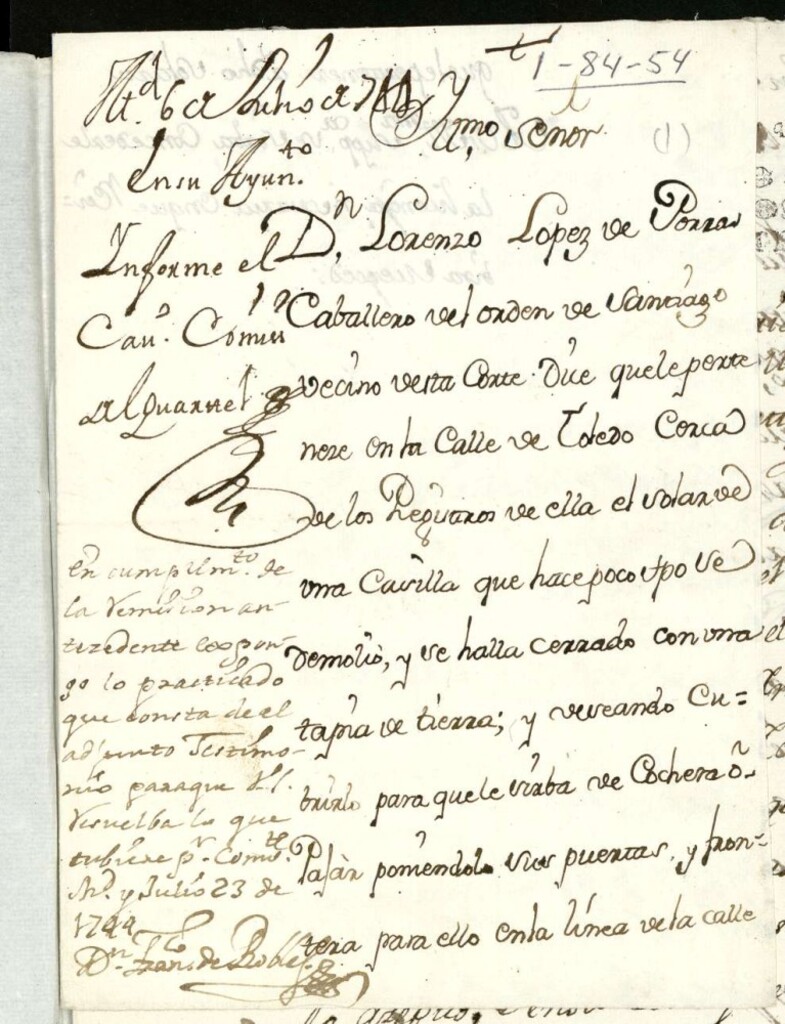 1-84-54
Md. 6 de Julio de 744
En su Ayunto
Informe el
Cavo. Comisrio
del Quartel
Yllmo, señor
Dn, Lorenzo Lopez de Porras
Caballero del orden de Santiago
vecino desta Corte. Dice que le perte
neze en la Calle de Toledo Cerca
de los Registros de ella el solar de
vna Casilla que hace poco tpo se
demolio, y se halla cerrado con vna
tapia de tierra; y deseando Cu=
brirlo para que le sirba de Cochera ô
Pajar poniendolo sus puertas, y fron=
tera para ello en la linea de la calle
En cumplimto. de
la remision an-
tezedente expon-
go lo practicado
que consta de el
adjunto Testimo-
nio para que V.I.
resuelba lo que
tubiere pr. Combte.
Md. y Julio 23 de
1744
Dn. Franco de Robles